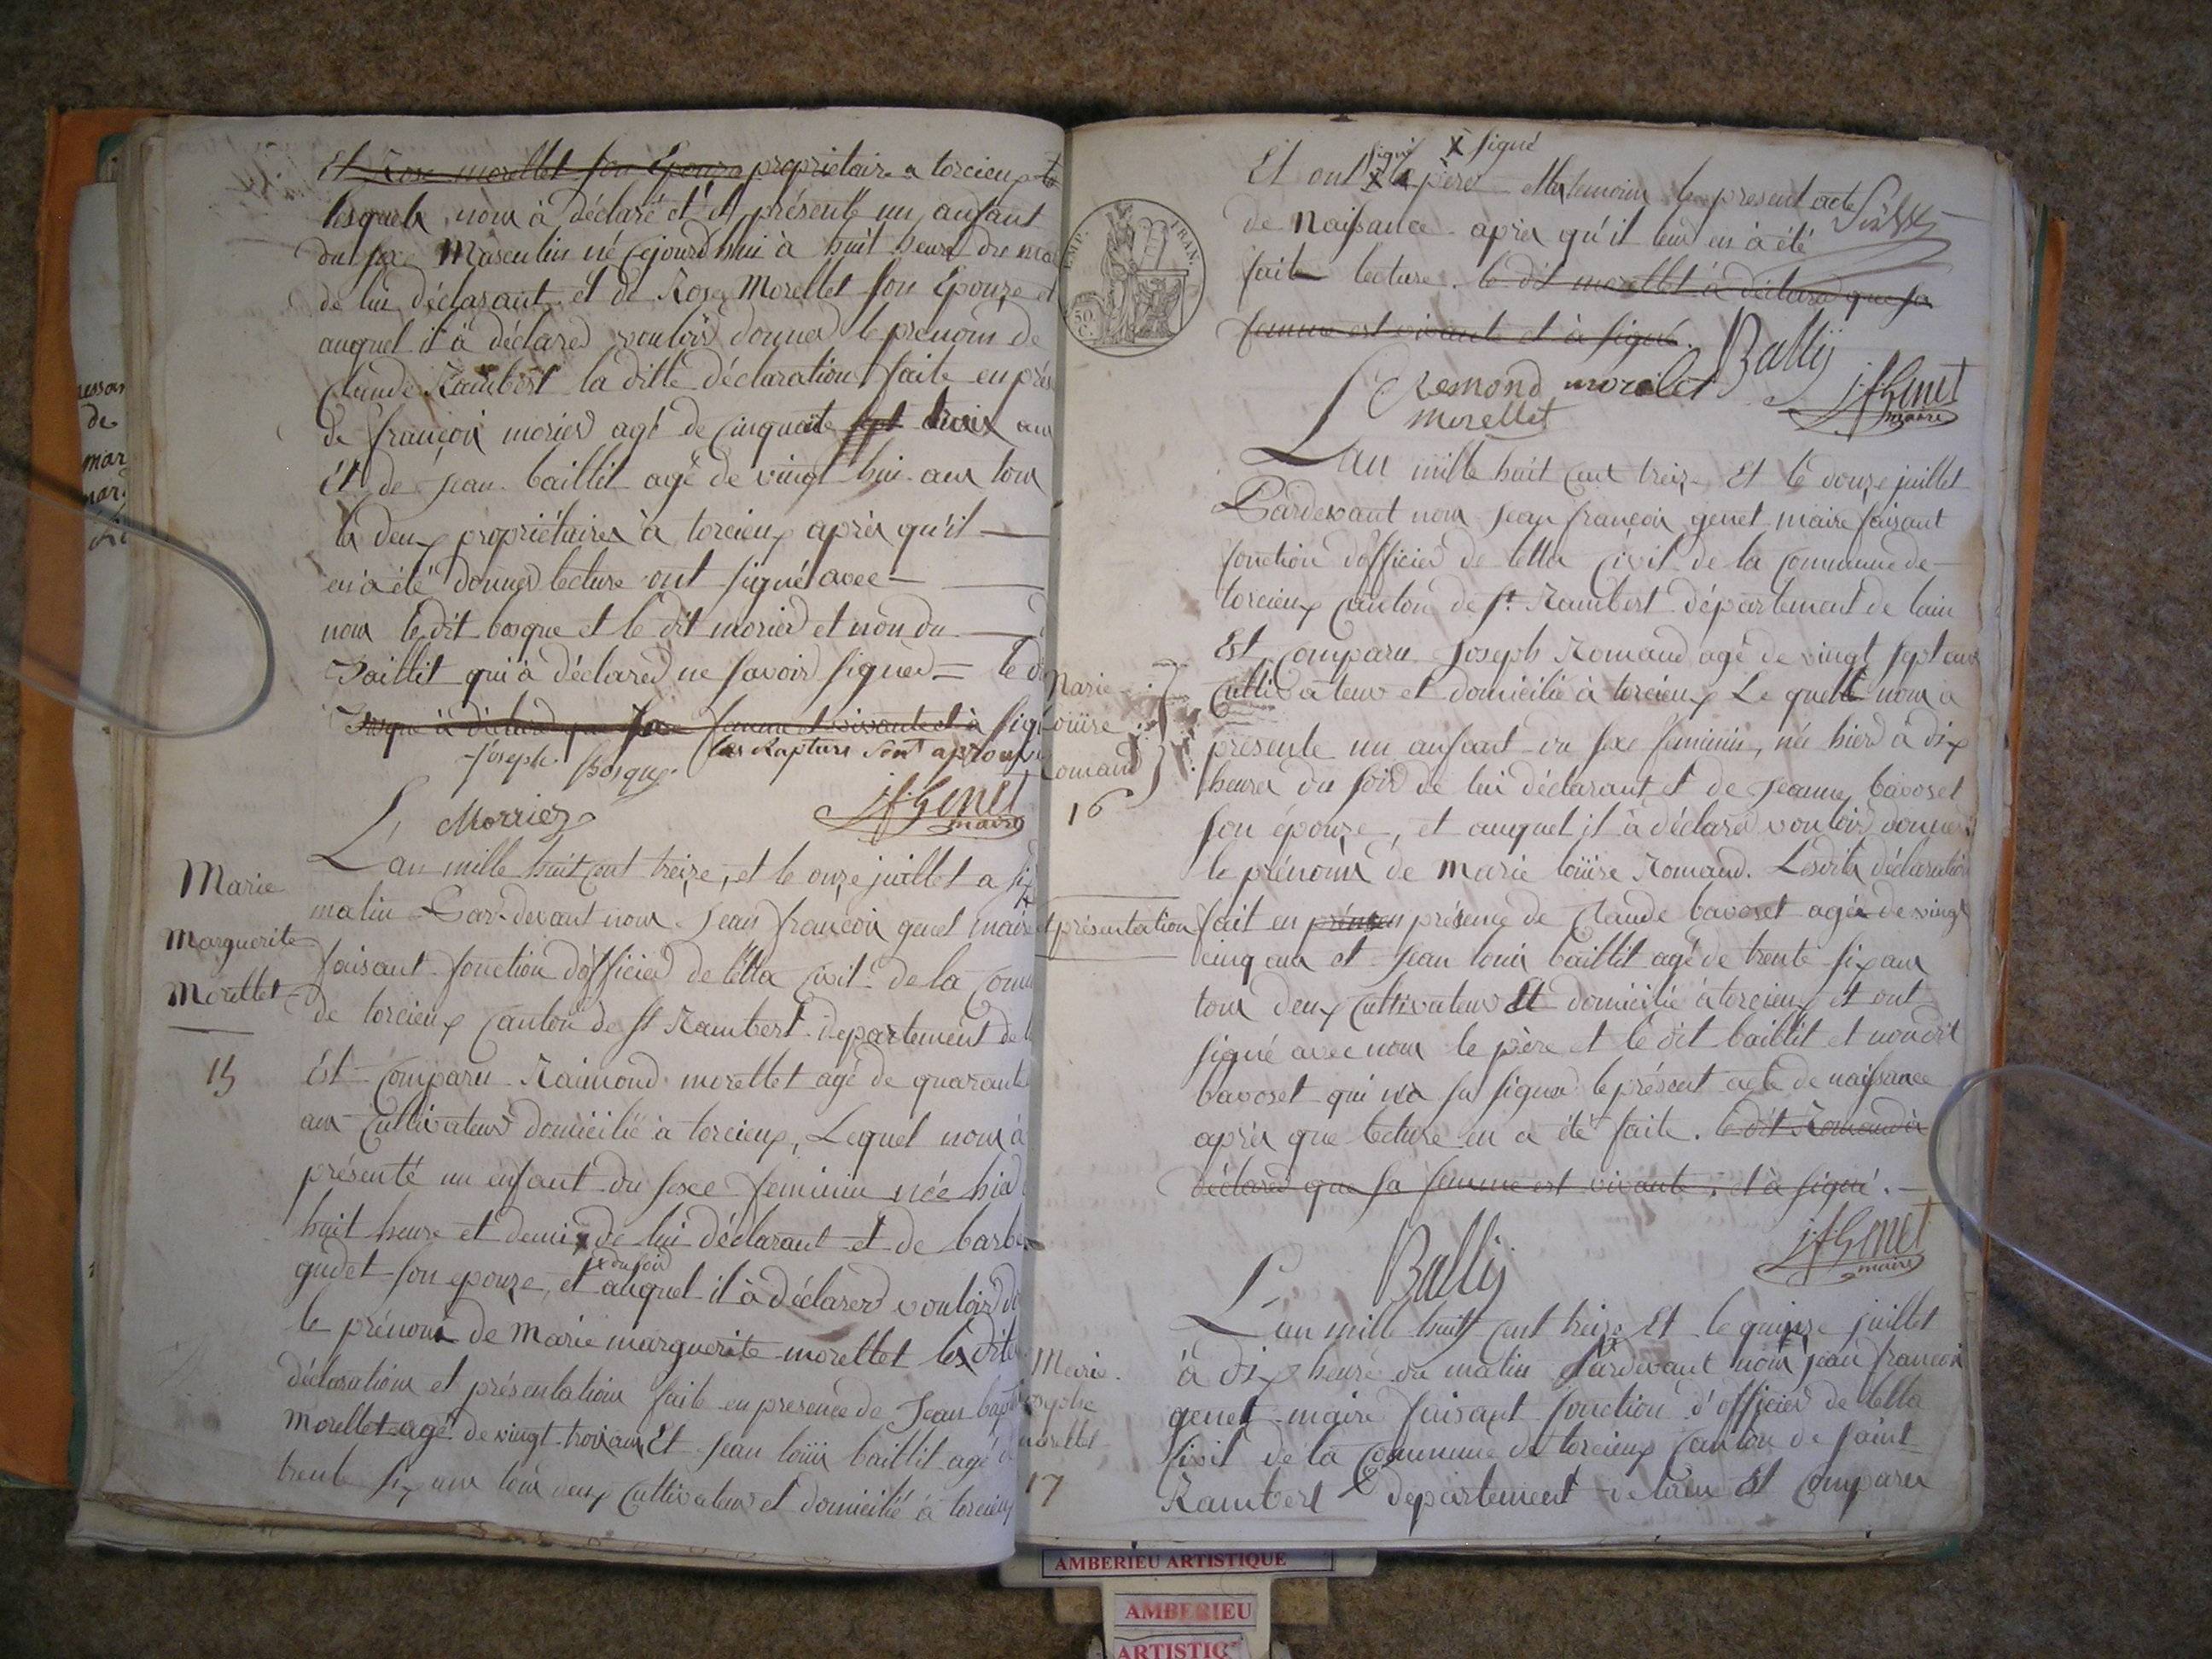 Et Rose morellet son Epouze propriétaire a torcieux
lesquels nous à déclaré et et présenté un anfant
du sexe Masculin né cejourd'hui à huit heure du
de lui déclarant et de Rose Morellet son Epouze et
auquel il à déclared vouloir donner le prénom de
Claude Rambert la ditte déclaration faite en
de françois morier agé de cinquante sept trois ans
Et de Jean baillit agé de vingt hui ans tous
les deux propriétaires à torcieux après qu'il
en à été donner lecture ont signé avec
nous le dit bosque et le dit morier et non du
Baillit qui à déclared ne savoir signer = le
Bosque à déclaré que sa femme et vivante et à
Joseph Bosque les Rapturs sont aprouvé
Morriez
jfGenet
maire
Marie
Marguerite
Morellet
15
L'an mille huit cent treize, et le onze juillet a
matin Par-devant nous Jean françois genet maire
faisant fonction d'officier de l'étta civil de la
de torcieux canton de st Rambert departement de
Est Comparu Raimond morellet agé de quarante
ans cultivateur domicilié à torcieux, Lequel nous à
présenté un enfant du sexe feminin née hier
huit heure et demi x de lui déclarant et de barbe
x du soir
gudet son epouze, et auquel il à déclarer vouloir
le prénoms de Marie marguerite morellet les dites
déclarations et présentations faite en presence de Jean
Morellet agé de vingt trois ans Et Jean loüis baillit agé
trente six ans tous deux cultivateur et domicilié à torcieux
signé x signé
Et ont x le père et les temoins le present acte
de Naissance après qu'il leur en à été
faite lecture. le dit morellet à déclared que sa
femme est vivante et à signé.
TIMP. FRAN.
50 C.
Bally
remond morelet
Morellet
jfGenet
maire
L'an mille huit cent treize Et le douze juillet
Pardevant nous Jean françois genet maire faisant
fonction d'officier de letta civil de la commune de
torcieux canton de st. Rambert département de lain
Est Comparu Joseph Romand agé de vingt sept ans
cultivateur et domicilié à torcieux Le quelle nous a
présente un anfant du sexe feminin, née hier à dix
heures du soir de lui déclarant et de Jeanne bavoset
son épouze, et auquel il à déclaré vouloir donner
le prénoms de Marie loüise Romand. Lesdits déclaration
Marie
loüise
Romand
16
et présentation
fait en présen présence de Claude bavoset agée de vingt
cinq ans et Jean louis baillit agé de trente six ans
tous deux cultivateur Et domicilié à torcieux et ont
signé avec nous le père et le dit baillit et non dit
bavoset qui n'a su signer le présent acte de naissance
après que lecture en a été faite. le dit Romand à
déclared que sa femme est vivante, et à signé.
Bally
jfGenet
maire
L'an mille huit cent treize Et le quinze juillet
à dix heure du matin Pardevant nous jean françois
genet maire faisant fonction d'officier de letta
sivil de la commune de torcieux canton de saint
Rambert departement de lain Est Comparu
Marie
Josephe
morellet
17
AMBERIEU ARTISTIQUE
AMBERIEU
ARTISTIQ